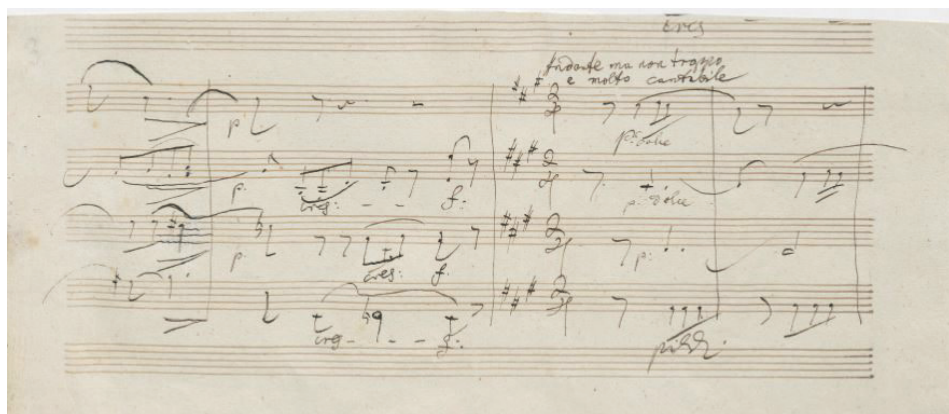 cres
Andante ma non troppo
e molto cantabile
p 2 4
p: dolce
p. 2 4
cres: - - f: p: dolce
p 2 4 p:
cres: f:
2 4
cres - - - f: pizz.